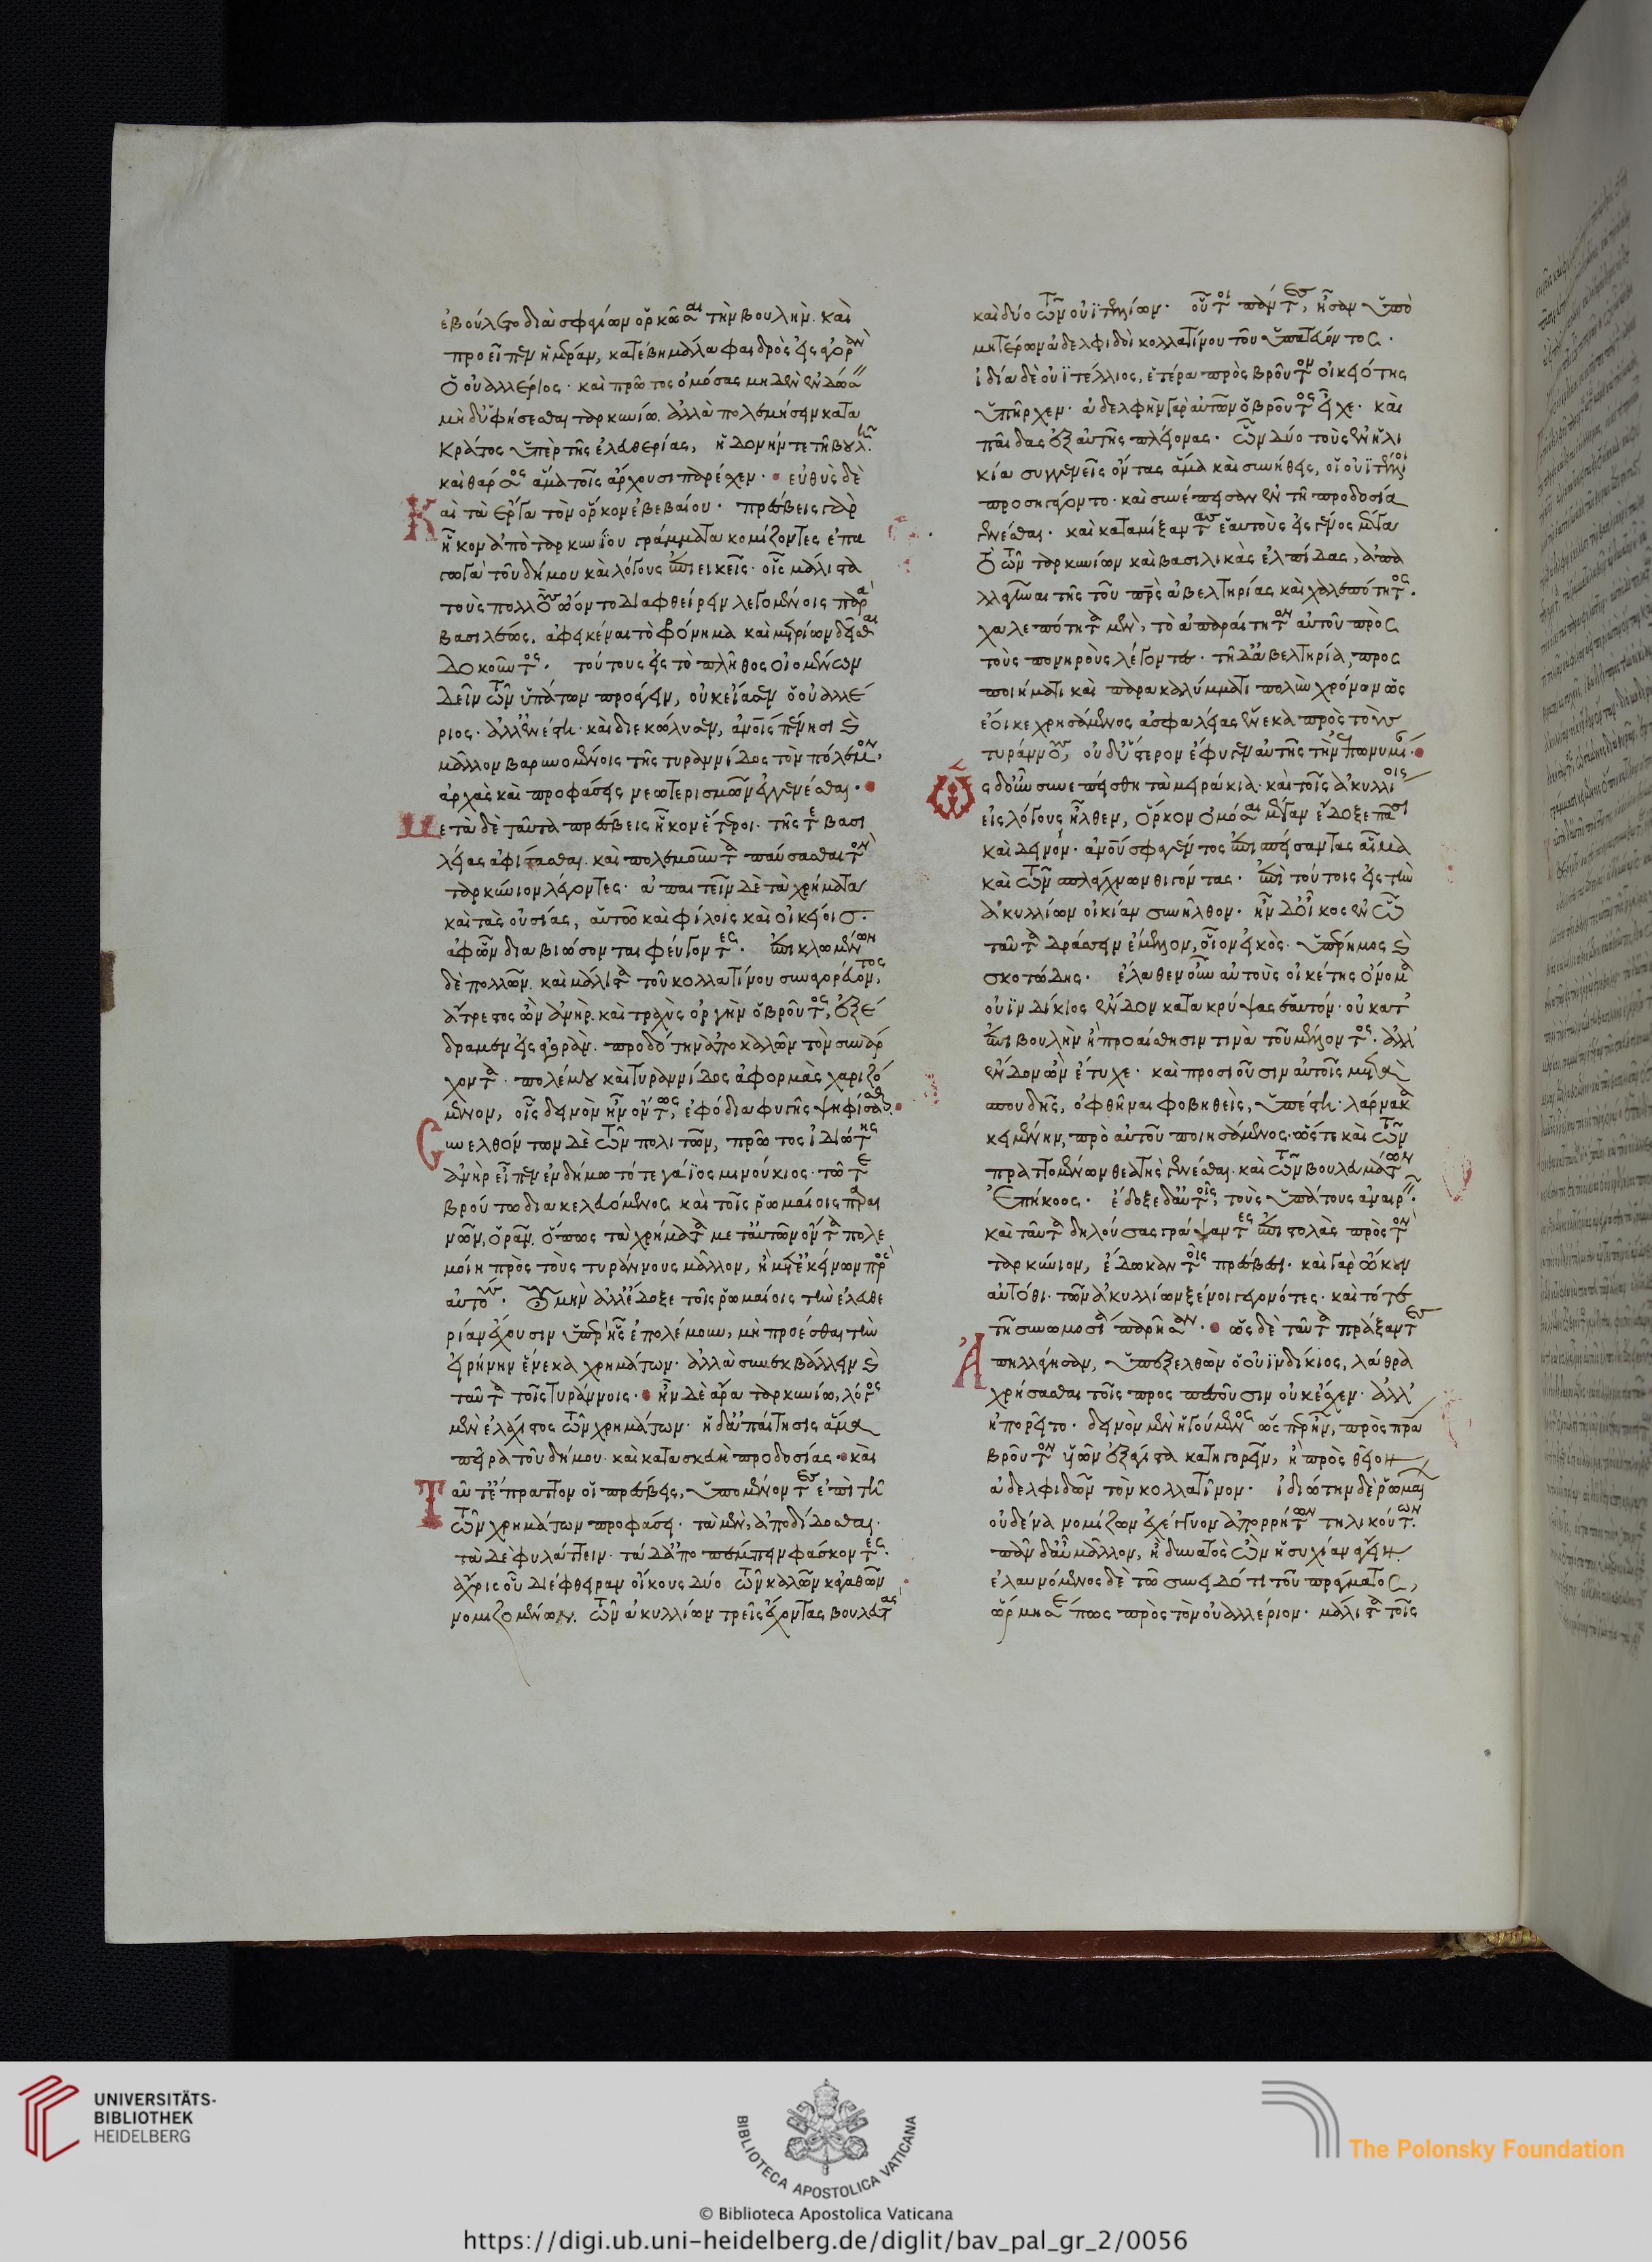 ἐβούλετο διὰ σφαγίων ὁρκῶσαι τὴν βουλὴν. καὶ
προεῖπεν ἡμέραν, κατέβη μάλα φαιδρὸς εἰς ἀγορὰν
ὁ οὐαλλέριος· καὶ πρῶτος ὀμόσας μηδὲν ἐνδώσειν
μὴδ' ὑφήσεσθαι ταρκυνίω. ἀλλὰ πολεμήσειν κατα
κράτος ὑπὲρ τῆς ἐλευθερίας, ἡδονήν τε τῆ βουλῆ
καὶ θάρσος ἅμα τοῖς ἄρχουσι παρέσχεν· εὐθὺς δὲ
καὶ τὰ ἔργα τὸν ὅρκον ἐβεβαίου· πρέσβεις γὰρ
ἧκον ἀπὸ ταρκυνίου γράμματα κομίζοντες ἐπα
γωγὰ τοῦ δήμου καὶ λόγους ἐπιεικεῖς· οἷς μάλιστα
τοὺς πολλοὺς ᾤοντο διαφθείρειν λεγομένοις παρὰ
βασιλέως. ἀφεικέναι τὸ φρόνημα καὶ μετρίων δεῖσθαι
δοκοῦντος· τούτους εἰς τὸ πλῆθος οἰομένων
δεῖν τῶν ὑπάτων προάγειν, οὐκ εἴασεν ὁ οὐαλλέ
ριος· ἀλλ' ἐνέστη· καὶ διεκώλυσεν, ἀνθρώποις πένησι καὶ
μᾶλλον βαρυνομένοις τῆς τυραννίδος τὸν πόλεμον,
ἀρχὰς καὶ προφάσεις νεωτερισμῶν ἐγγενέσθαι·
μετὰ δὲ ταῦτα πρέσβεις ἧκον ἕτεροι. τῆς τε βασι
λείας ἀφίστασθαι. καὶ πολεμοῦντα παύσασθαι τὸν
ταρκύνιον λέγοντες· ἀπαιτεῖν δὲ τὰ χρήματα
καὶ τὰς οὐσίας, αὑτῶ καὶ φίλοις καὶ οἰκείοις·
ἀφ' ὧν διαβιώσονται φεύγοντες· ἐπικλωμένων
δὲ πολλῶν. καὶ μάλιστα τοῦ κολλατίνου συναγορεύοντος,
ἄτρεπτος ὢν ἀνὴρ. καὶ τραχὺς ὀργὴν ὁ βροῦτος, ἐξέ
δραμεν εἰς ἀγορὰν. προδότην ἀποκαλῶν τὸν συνάρ
χοντα· πολέμου καὶ τυραννίδος ἀφορμὰς χαριζό
μενον, οἷς δεινὸν ἦν ὄντως, ἐφόδια φυγῆς ψηφίσασθαι·
συνελθόντων δὲ τῶν πολιτῶν, πρῶτος ἰδιώτης
ἀνὴρ εἶπεν ἐν δήμω τότε γάϊος μινούκιος· τῶ τε
βρούτω διακελευόμενος καὶ τοῖς ῥωμαίοις παραι
νῶν, ὁρᾶν, ὅπως τὰ χρήματα μετ' αὐτῶν ὄντα πολε
μοίη πρὸς τοὺς τυράννους μᾶλλον, ἢ μετ' ἐκείνων πρὸς
αὐτούς· οὐ μὴν ἀλλ' ἔδοξε τοῖς ῥωμαίοις τὴν ἐλευθε
ρίαν ἔχουσιν ὑπὲρ ἧς ἐπολέμουν, μὴ προέσθαι τὴν
εἰρήνην ἕνεκα χρημάτων· ἀλλὰ συνεκβάλλειν καὶ
ταῦτα τοῖς τυράννοις· ἦν δὲ ἄρα ταρκυνίω, λόγος
μὲν ἐλάχιστος τῶν χρημάτων· ἡ δ' ἀπαίτησις ἅμα
πεῖρα τοῦ δήμου· καὶ κατασκευὴ προδοσίας· καὶ
ταῦτ' ἔπραττον οἱ πρέσβεις, ὑπομένοντες ἐπὶ τῆ
τῶν χρημάτων προφάσει· τὰ μὲν, ἀποδίδοσθαι·
τὰ δὲ φυλάττειν· τὰ δ' ἀποπέμπειν φάσκοντες·
ἄχρις οὗ διέφθειραν οἴκους δύο τῶν καλῶν κἀγαθῶν
νομιζομένων. τῶν ἀκυλλίων τρεῖς ἔχοντας βουλευτὰς
καὶ δύο τῶν οὐϊτελλίων· οὗτοι πάντες, ἦσαν ὑπὸ
μητέρων ἀδελφιδοῖ κολλατίνου τοῦ ὑπατεύοντος·
ἰδία δὲ οὐϊτελλίοις, ἑτέρα πρὸς βροῦτον οἰκειότης
ὑπῆρχεν· ἀδελφὴν γὰρ αὐτῶν ὁ βροῦτος εἶχε· καὶ
παῖδας ἐξ αὐτῆς πλείονας· ὧν δύο τοὺς ἐν ἡλι
κία συγγενεῖς ὄντας ἅμα καὶ συνήθεις, οἱ οὐϊτέλλιοι
προσηγάγοντο· καὶ συνέπεισαν ἐν τῆ προδοσία
γενέσθαι· καὶ καταμίξαντας ἑαυτοὺς εἰς γένος μέγα
τὸ τῶν ταρκυνίων καὶ βασιλικὰς ἐλπίδας, ἀπα
λλαγῆναι τῆς τοῦ πατρὸς ἀβελτηρίας καὶ χαλεπότητος·
χαλεπότητα μὲν, τὸ ἀπαραίτητον αὐτοῦ πρὸς
τοὺς πονηροὺς λέγοντες· τῆ δ' ἀβελτηρία, προσ
ποιήματι καὶ παρακαλύμματι πολὺν χρόνον ὡς
ἔοικε χρησάμενος ἀσφαλείας ἕνεκα πρὸς τοὺς
τυράννους, οὐδ' ὕστερον ἔφυγεν αὐτῆς τὴν ἐπωνυμίαν·
ὡς δ' οὖν συνεπείσθη τὰ μειράκια· καὶ τοῖς ἀκυλλίοις
εἰς λόγους ἦλθεν, ὅρκον ὀμόσαι μέγαν ἔδοξε πᾶσι
καὶ δεινόν· ἀνθρώπου σφαγέντος ἐπισπείσαντας αἷμα
καὶ τῶν σπλάγχνων θιγόντας· ἐπὶ τούτοις εἰς τὴν
ἀκυλλίων οἰκίαν συνῆλθον· ἦν δ' ὁ οἶκος ἐν ᾧ
ταῦτα δράσειν ἔμελλον, οἷον εἰκὸς· ὑπέρημος καὶ
σκοτώδης· ἔλαθεν οὖν αὐτοὺς οἰκέτης ὄνομα
οὐϊνδίκιος ἔνδον κατακρύψας ἑαυτόν· οὐ κατ'
ἐπιβουλὴν ἢ προαίσθησιν τινὰ τοῦ μέλλοντος· ἀλλ'
ἔνδον ὢν ἔτυχε· καὶ προσιοῦσιν αὐτοῖς μετὰ
σπουδῆς, ὀφθῆναι φοβηθεὶς, ὑπέστη· λάρνακα
κειμένην, πρὸ αὐτοῦ ποιησάμενος· ὥστε καὶ τῶν
πραττομένων θεατὴς γενέσθαι· καὶ τῶν βουλευμάτων
ἐπήκοος· ἔδοξε δ' αὐτοῖς, τοὺς ὑπάτους ἀναιρεῖν·
καὶ ταῦτα δηλούσας γράψαντες ἐπιστολὰς πρὸς τὸν
ταρκύνιον, ἔδωκαν τοῖς πρέσβεσι· καὶ γὰρ ᾤκουν
αὐτόθι· τῶν ἀκυλλίων ξένοι γεγονότες· καὶ τότε
τῆ συνωμοσία παρῆσαν· ὡς δὲ ταῦτα πράξαντες
ἀπηλλάγησαν, ὑπεξελθὼν ὁ οὐϊνδίκιος, λάθρα
χρήσασθαι τοῖς προσπεσοῦσιν οὐκ εἶχεν· ἀλλ'
ἠπορεῖτο· δεινὸν μὲν ἡγούμενος ὥσπερ ἦν, πρὸς πατέρα
βροῦτον υἱῶν ἔξάγιστα κατηγορεῖν, ἢ πρὸς θεῖον
ἀδελφιδῶν τὸν κολλατῖνον· ἰδιώτην δὲ ῥωμαίων
οὐδένα νομίζων ἐχέγγυον ἀπορρήτων τηλικούτων·
πᾶν δ' αὖ μᾶλλον, ἢ δυνατὸς ὢν ἡσυχίαν ἄγειν·
ἐλαυνόμενος δὲ τῶ συνειδότι τοῦ πράγματος,
ὥρμησέ πως πρὸς τὸν οὐαλλέριον· μάλιστα τοῖς
UNIVERSITÄTS-
BIBLIOTHEK
HEIDELBERG
BIBLIOTECA APOSTOLICA VATICANA
The Polonsky Foundation
© Biblioteca Apostolica Vaticana
https://digi.ub.uni-heidelberg.de/diglit/bav_pal_gr_2/0056